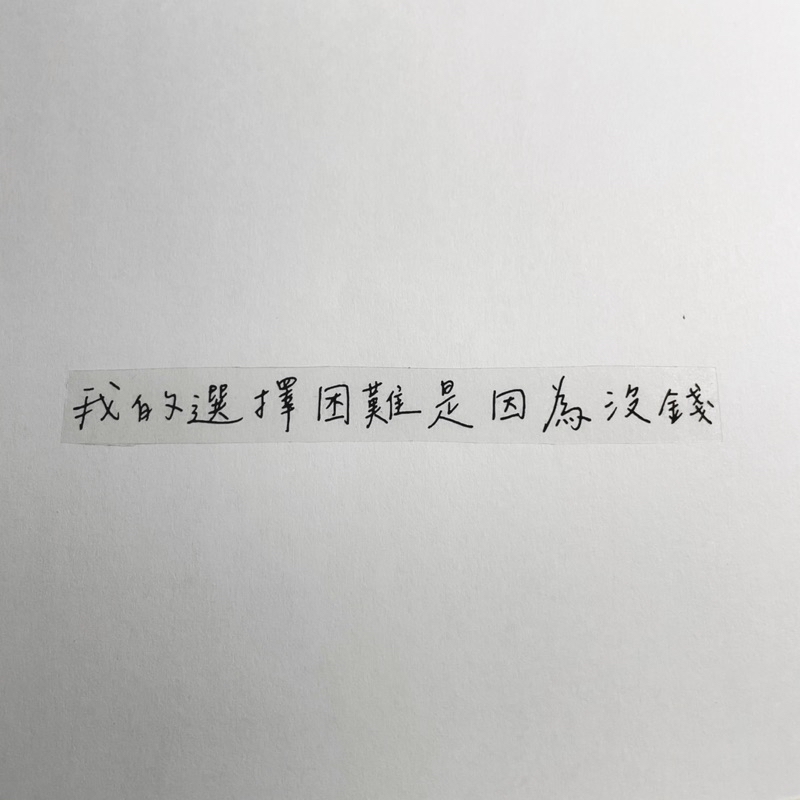 我的選擇困難是因為沒錢